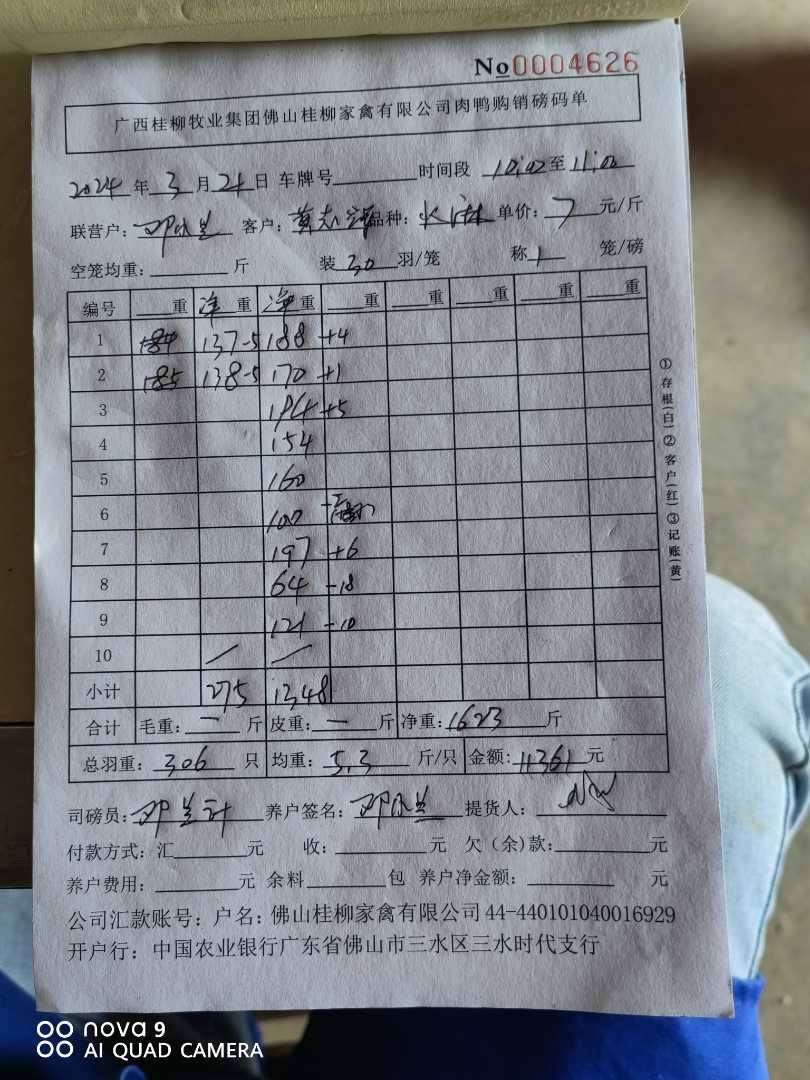 No0004626
广西桂柳牧业集团佛山桂柳家禽有限公司肉鸭购销磅码单
2024年3月21日 车牌号 时间段 10:02至11:00
联营户: 客户:黄志 品种: 单价:7元/斤
空笼均重: 斤 装30羽/笼 称1笼/磅
编号 重 净重 净重 重 重 重 重 重
1 184 137-5 188 +4
2 185 138-5 170 +1
3 194 +5
4 154
5 160
6 100
7 197 +6
8 64 -18
9 121 -10
10 / /
小计 275 1348
合计 毛重:一斤 皮重:一斤 净重:1623斤
总羽重:306只 均重:5.3斤/只 金额:11361元
司磅员:邓 养户签名:邓 提货人:
付款方式:汇 元 收: 元 欠(余)款: 元
养户费用: 元 余料 包 养户净金额: 元
公司汇款账号:户名:佛山桂柳家禽有限公司 44-440101040016929
开户行:中国农业银行广东省佛山市三水区三水时代支行
①存根(白)②客户(红)③记账(黄)
nova 9
AI QUAD CAMERA